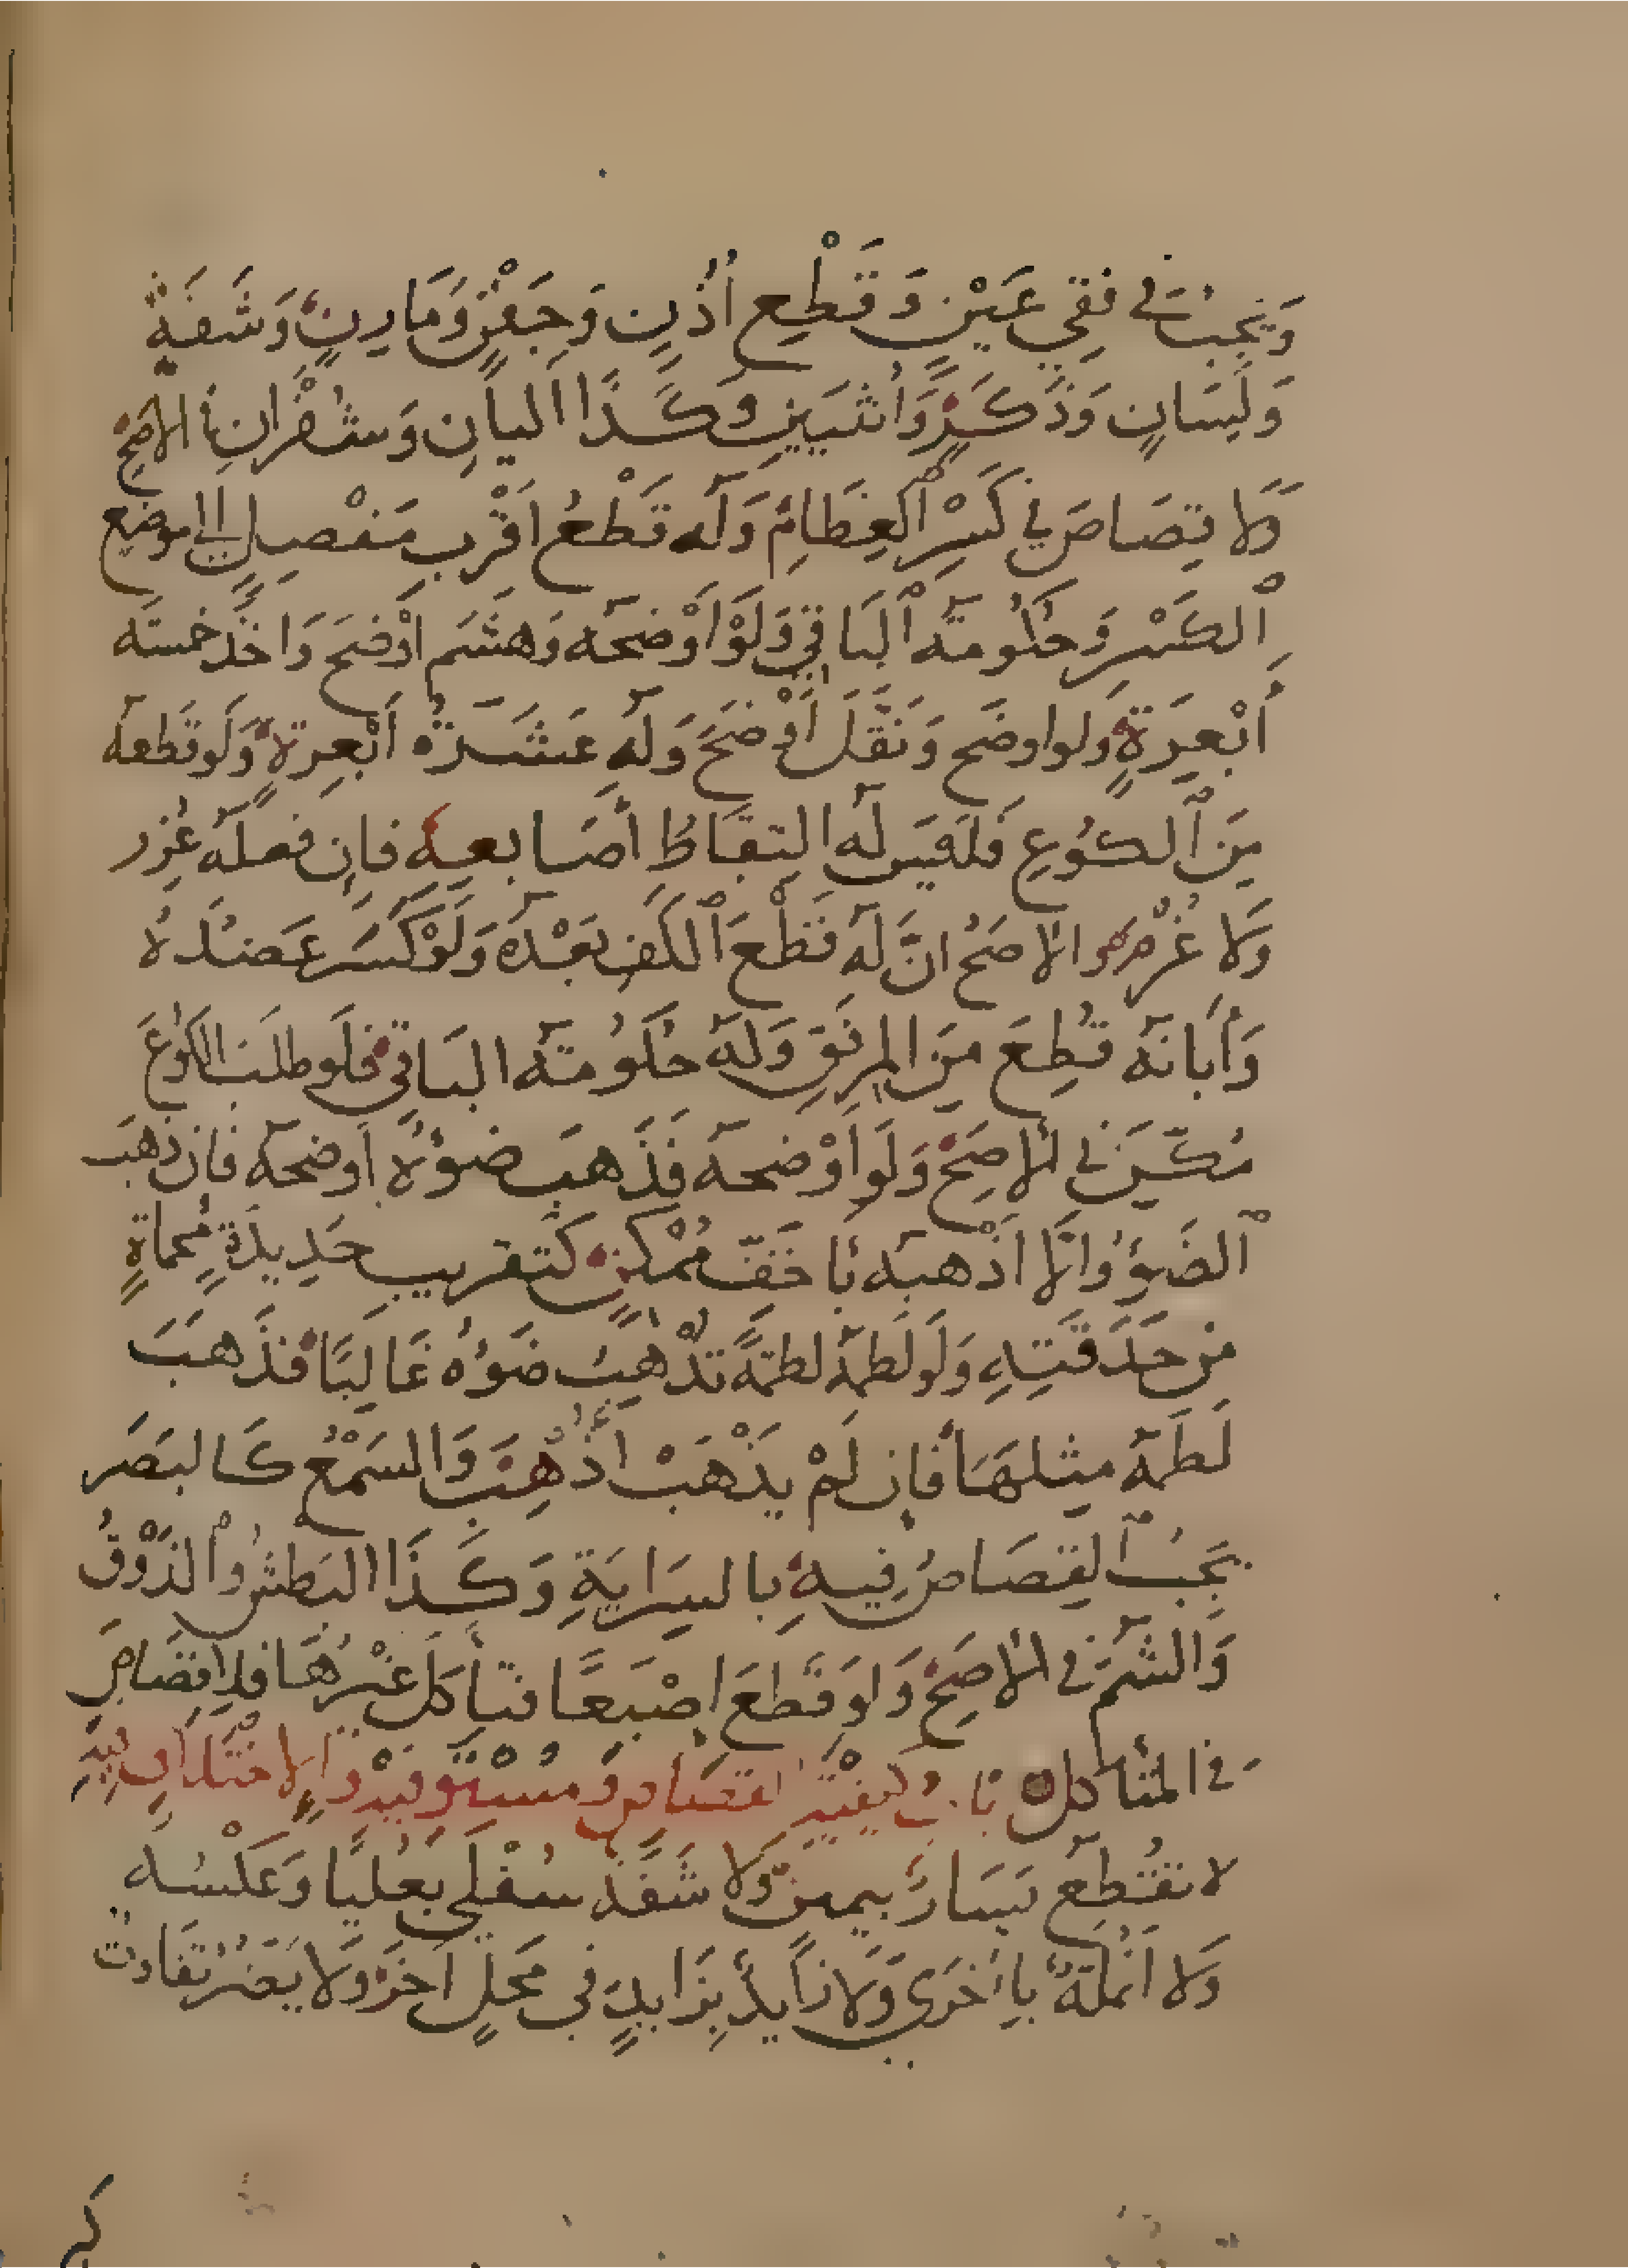 وَيَجِبُ في فقيِ عَيْنٍ وَقَطْعِ اُذُنٍ وَجَفْنٍ وَمَارِنٍ وَشَفَةٍ
وَلِسَانٍ وَذَكَرٍ وَاُنثَيَينِ وَكَذَا اَليانِ وَشُفْرَانِ في الاصَحِّ
وَلا قِصَاصَ في كَسْرِ ٱلعِظَامِ وَلَه قَطْعُ اَقْرَبِ مَفْصِلٍ الى موضِعِ
ٱلكَسْرِ وَحكُومَة ٱلبَاقِي وَلَوْ اَوْضحَه وَهَشَمَ اَوْضَحَ وَاخَذ خمسَة
اَبْعِرَةٍ ولو اوضَح وَنَقَّلَ اَوْضَحَ وَلَهِ عَشَرَةُ اَبْعِرَةٍ وَلَو قَطَعه
مِنَ ٱلكُوعِ فَلَيسَ لَه التِقَاطُ أصَابعِه فَاِن فَعلَه عُزِر
وَلا غُرْمَ والاصَحُ انَّ لَه قَطْعَ ٱلكَفِ بَعْدَه وَلَوْ كَسَر عَضدَهُ
وَأبَانَه قُطِعَ مِنَ المِرفَقِ وَلَه حكُومَة البَاقِي فلَو طلَبَ الكُوعَ
مُكِّنَ في الاصَحِّ وَلَو اَوْضحَه فَذَهبَ ضوْؤُهُ اَوضحَه فَان ذهَب
ٱلضَوْؤُ وَاِلَّا اَذْهبَه بَاخَفّ مُمْكنٍ كَتقرِيبِ حَدِيدَةٍ مُحماةٍ
مِن حَدَقَتِهِ وَلَو لَطَمَهُ لطمَةً تُذْهِبُ ضَوْءُه غَالِبًا فَذَهبَ
لَطَمَهُ مِثلهَا فَاِن لَمْ يَذْهَبْ اُذْهِبَ وَالسَمْعُ كَالبَصَر
يَجِبُ ٱلقِصَاصُ فِيهِ بالسِرَايَةِ وَكَذَا البَطشُ وَالذَوْقُ
وَالشَمُّ في الاصَحِّ وَلوَ قَطعَ اِصْبَعًا فتَأكل غَيْرُهَا فلا قِصَاصَ
في المُتأكل بَابُ كيفيَّة القصَاص وَمُسْتَوفِيه وَالاِختلاَفِ فِيهِ
لا تقُطَع يَسَارٌ بيمينٍ وَلا شَفَة سُفْلَى بعُليَا وَعَكْسُه
وَلا اَنْمُلَةٌ بِاُخرَى وَلا زَايدٌ بِزَايدٍ في مَحلٍ اَخَرَ وَلا يَضرُ تفَاوتُ
كبر